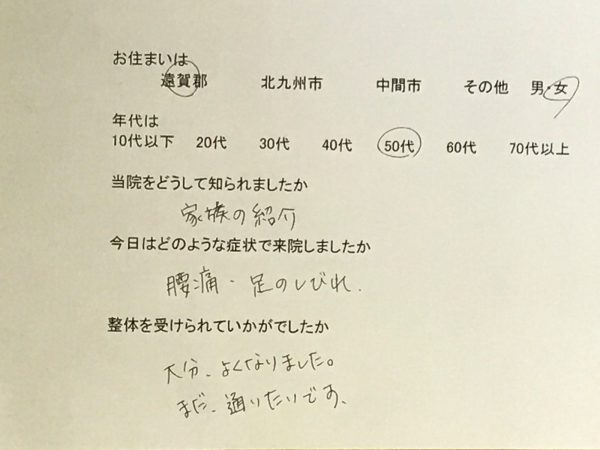 お住まいは
遠賀郡 北九州市 中間市 その他 男・女
年代は
10代以下 20代 30代 40代 50代 60代 70代以上
当院をどうして知られましたか
家族の紹介
今日はどのような症状で来院しましたか
腰痛・足のしびれ.
整体を受けられていかがでしたか
大分、よくなりました。
まだ、通いたいです、